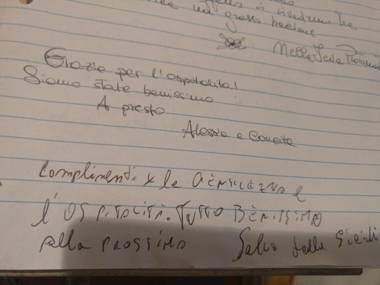 un grosso bacione
Grazie per l'ospitalità!
Siamo state benissimo
A presto
Alessia e
Complimenti x la GENTILEZZA e
l'OSPITALITÀ. TUTTO BENISSIMO
alla PROSSIMA Salvo dalla Sicilia